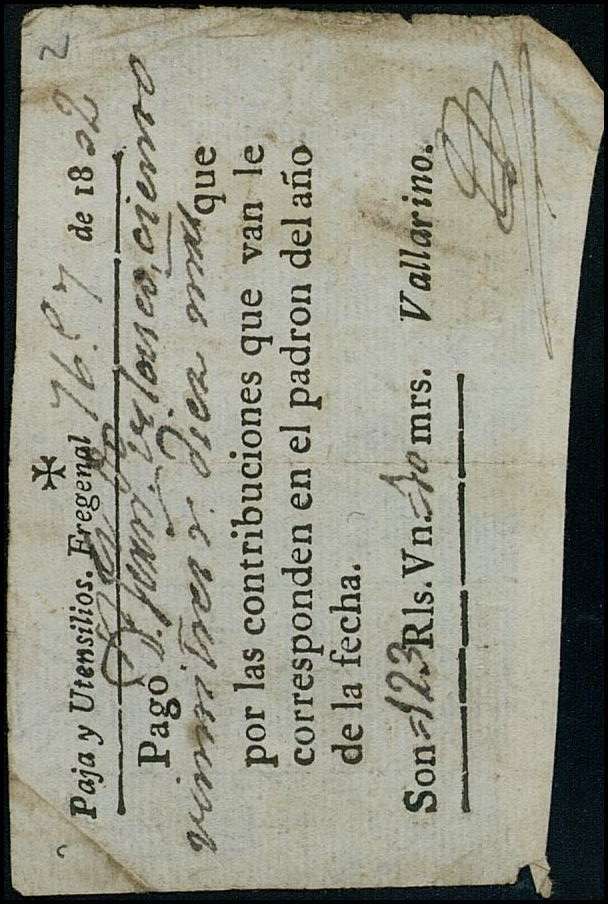 2
✠
Paja y Utensilios. Fregenal de 1832
Pago D. Juan Velasco, ciento
veinte y tres rs. diez mrs que
por las contribuciones que van le
corresponden en el padron del año
de la fecha.
Son=123 Rls. Vn.=10 mrs. Vallarino.